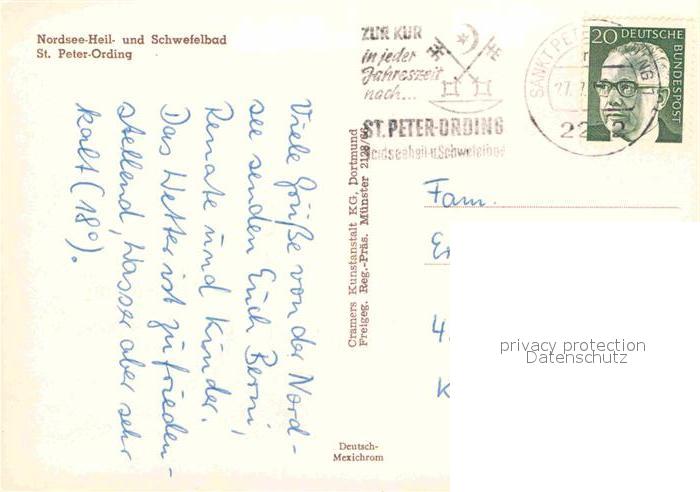 Nordsee-Heil- und Schwefelbad
St. Peter-Ording
ZUR KUR
in jeder
Jahreszeit
nach...
ST. PETER-ORDING
Nordseeheil-u.Schwefelbad
20 DEUTSCHE
BUNDESPOST
SANKT PETER-ORDING 1
2252
Viele Grüße von der Nord-
see senden Euch Berni,
Renate und Kinder.
Das Wetter ist zufrieden-
stellend, Wasser aber sehr
kalt (18°).
Cramers Kunstanstalt KG, Dortmund
Freigeg. Reg.-Präs. Münster 2128/66
Deutsch-
Mexichrom
Fam.
4.
K
privacy protection
Datenschutz